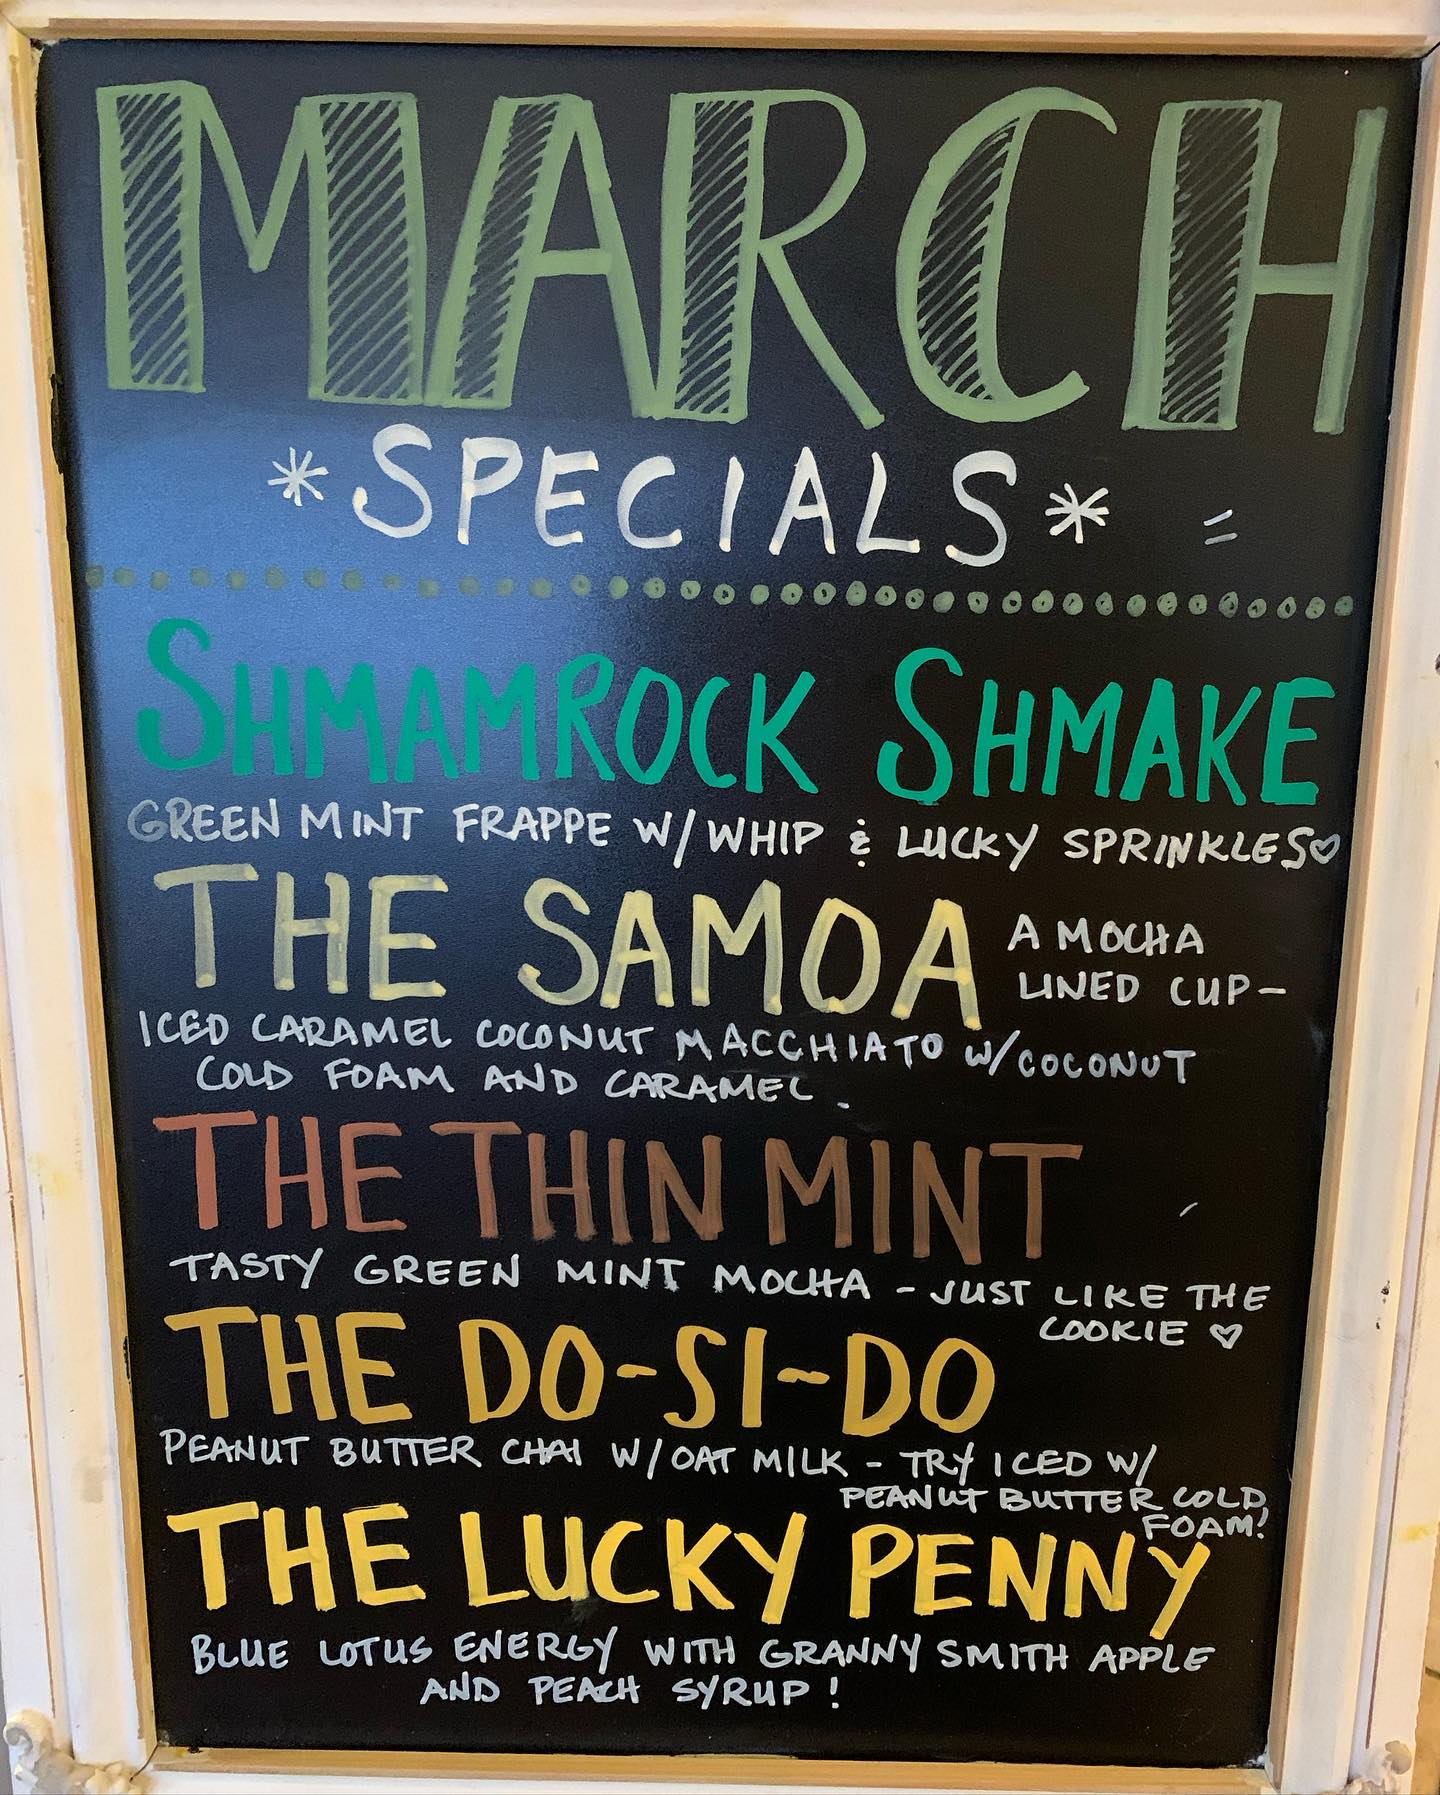 MARCH
*SPECIALS*
SHMAMROCK SHMAKE
GREEN MINT FRAPPE W/WHIP & LUCKY SPRINKLES♡
THE SAMOA
A MOCHA
LINED CUP-
ICED CARAMEL COCONUT MACCHIATO W/COCONUT
COLD FOAM AND CARAMEL
THE THIN MINT
TASTY GREEN MINT MOCHA - JUST LIKE THE
COOKIE ♡
THE DO-SI-DO
PEANUT BUTTER CHAI W/OAT MILK - TRY ICED W/
PEANUT BUTTER COLD
FOAM!
THE LUCKY PENNY
BLUE LOTUS ENERGY WITH GRANNY SMITH APPLE
AND PEACH SYRUP!